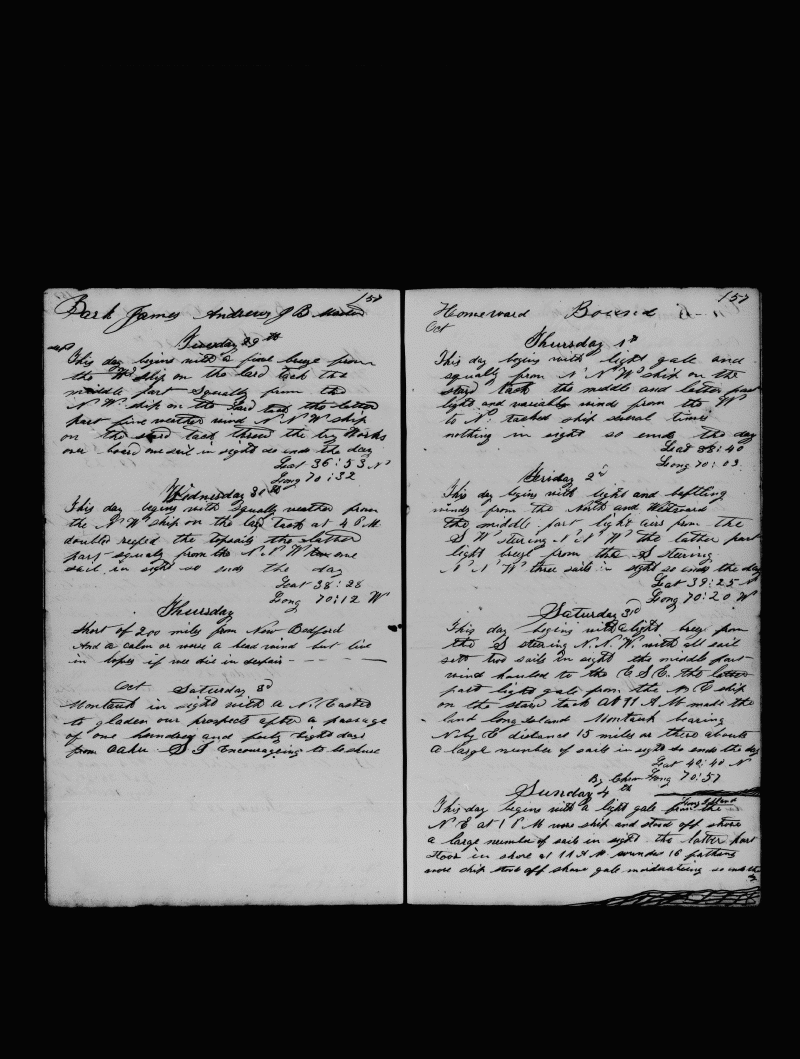 157
Bark James Andrews J B Master
Tuesday 29th
Sept
This day begins with a fine breeze from
the Wd ship on the lard tack the
middle part squally from the
N Wd ship on the lard tack the latter
part fine weather wind N N W ship
on the stard tack throed the try Works
over board one sail in sight so ends the day
Lat 36:53 N
Long 70:32
Wednesday 30th
This day begins with squally weather from
the N Wd ship on the lard tack at 4 P M
doubled reefed the topsails the latter
part squaly from the N. N W one
sail in sight so ends the day
Lat 38:28
Long 70:12 W
Thursday
Short of 200 miles from New Bedford
And a calm or worse a head wind but live
in hopes if we die in despair - - -
Oct Saturday 3d
Montauk in sight with a N. Easter
to gladen our prospects after a passage
of one hundrey and forty Eight days
from Oahu. Encourageing to be shure
157
Homeward Bound
Oct
Thursday 1st
This day begins with light gale and
squally from N N Wd ship on the
stard tack the middle and latter part
light and variable winds from the W
to N. tacked ship several times
nothing in sight so ends the day
Lat 38:40
Long 70:03
Friday 2d
This day begins with light and baffling
winds from the North and Westward
the middle part light airs from the
S W stering N N Wd the latter part
light breze from the S steering
N N W three sails in sight so ends the day
Lat 39:25 N
Long 70:20 W
Saturday 3d
This day begins with a light brez from
the S steering N.N.W. with all sail
sett two sails in sight the middle part
wind hauled to the E S E. the latter
part light gale from the N E ship
on the stard tack At 11 A M made the
land long Island Montauk bearing
N by E distance 15 miles or there abouts
a large number of sails in sight so ends the day
Lat 40:40 N
By Chron Long 70:57
Sunday 4th
Long Island
This day begins with a light gale from the
N E at 1 P M wore ship and stood off shore
a large number of sails in sight the latter part
stood in shore at 11 A M sounded 16 fathoms
wore ship stood off shore gale moderateing so ends the